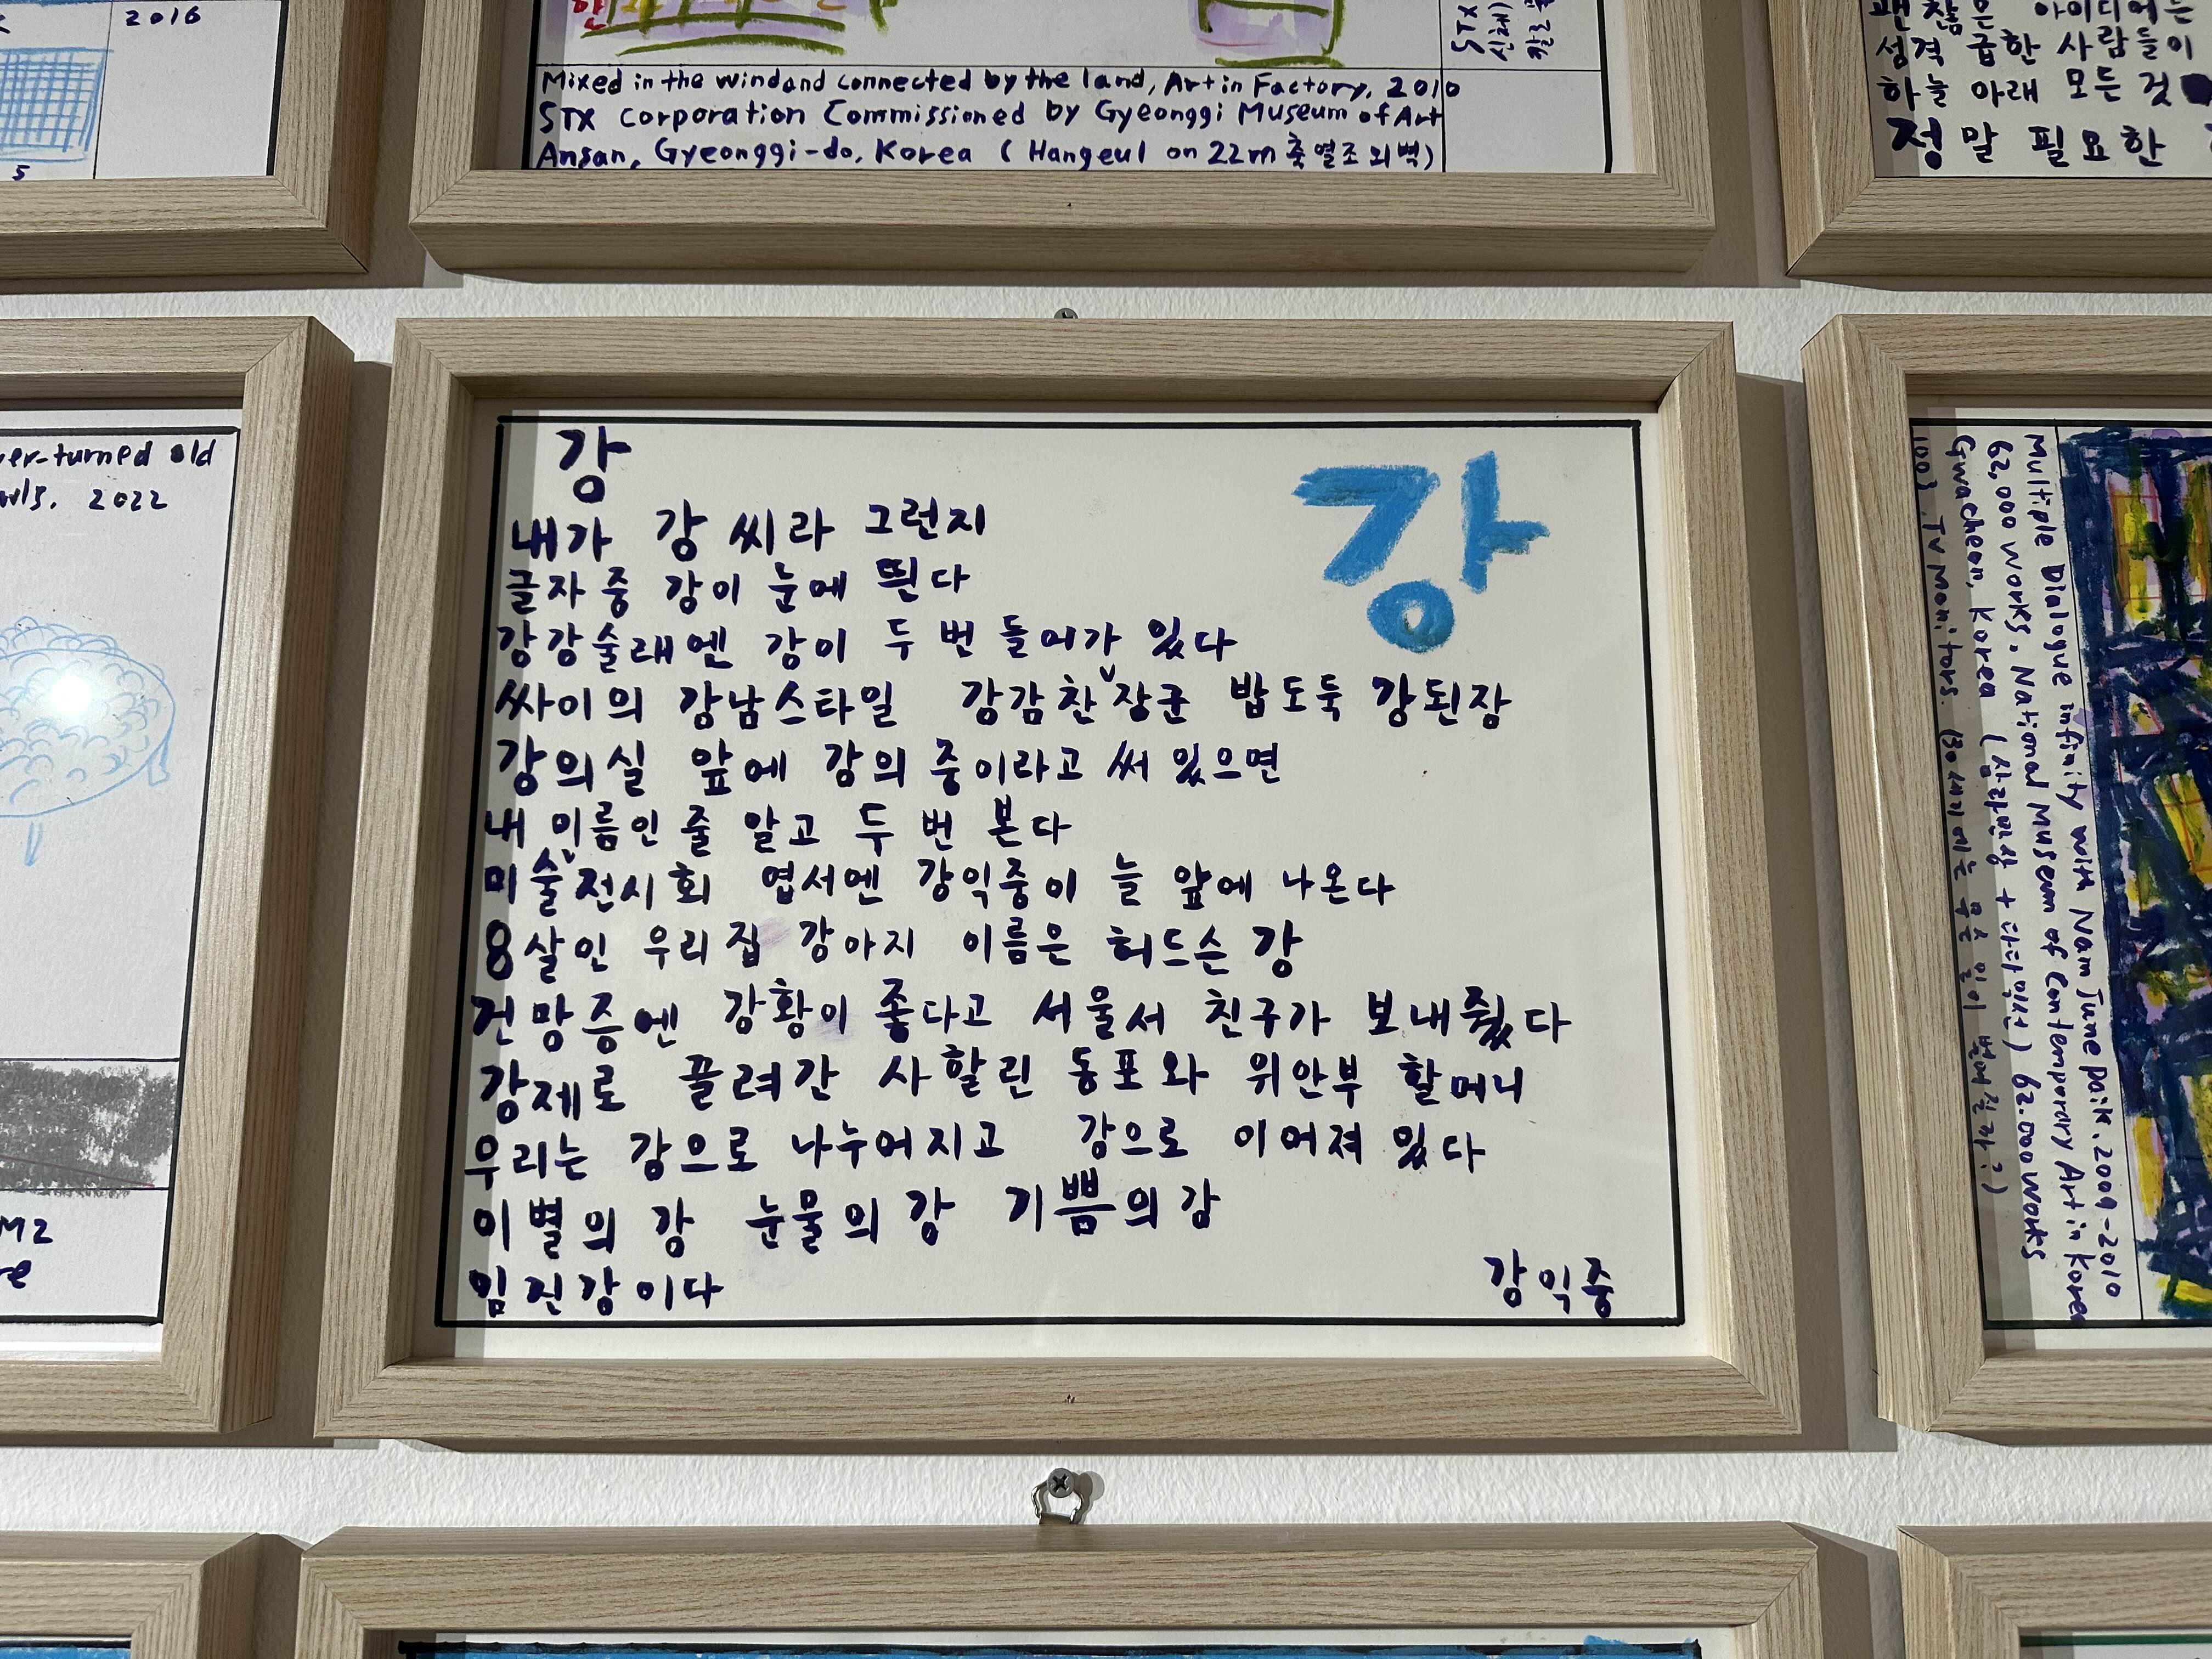 2016
5
Mixed in the wind and connected by the land, Art in Factory, 2010
STX Corporation Commissioned by Gyeonggi Museum of Art
Ansan, Gyeonggi-do, Korea ( Hangeul on 22m 축열조 외벽)
STX
괜찮은 아이디어는
성격 급한 사람들이
하늘 아래 모든 것
정말 필요한
er-turned old
wls, 2022
M2
re
강
강
내가 강 씨라 그런지
글자 중 강이 눈에 띈다
강강술래엔 강이 두 번 들어가 있다
싸이의 강남스타일 강감찬∨장군 밥도둑 강된장
강의실 앞에 강의 중이라고 써 있으면
내 이름인 줄 알고 두 번 본다
미술∨전시회 엽서엔 강익중이 늘 앞에 나온다
8살인 우리 집 강아지 이름은 허드슨 강
건망증엔 강황이 좋다고 서울서 친구가 보내줬다
강제로 끌려간 사할린 동포와 위안부 할머니
우리는 강으로 나누어지고 강으로 이어져 있다
이별의 강 눈물의 강 기쁨의 강
임진강이다
강익중
Multiple Dialogue infinity with Nam June paik, 2009-2010
62,000 works. National Museum of Contemporary Art in Korea
Gwacheon, Korea (삼라만상 + 다다익선) 62.000 works
1003 TV Monitors.